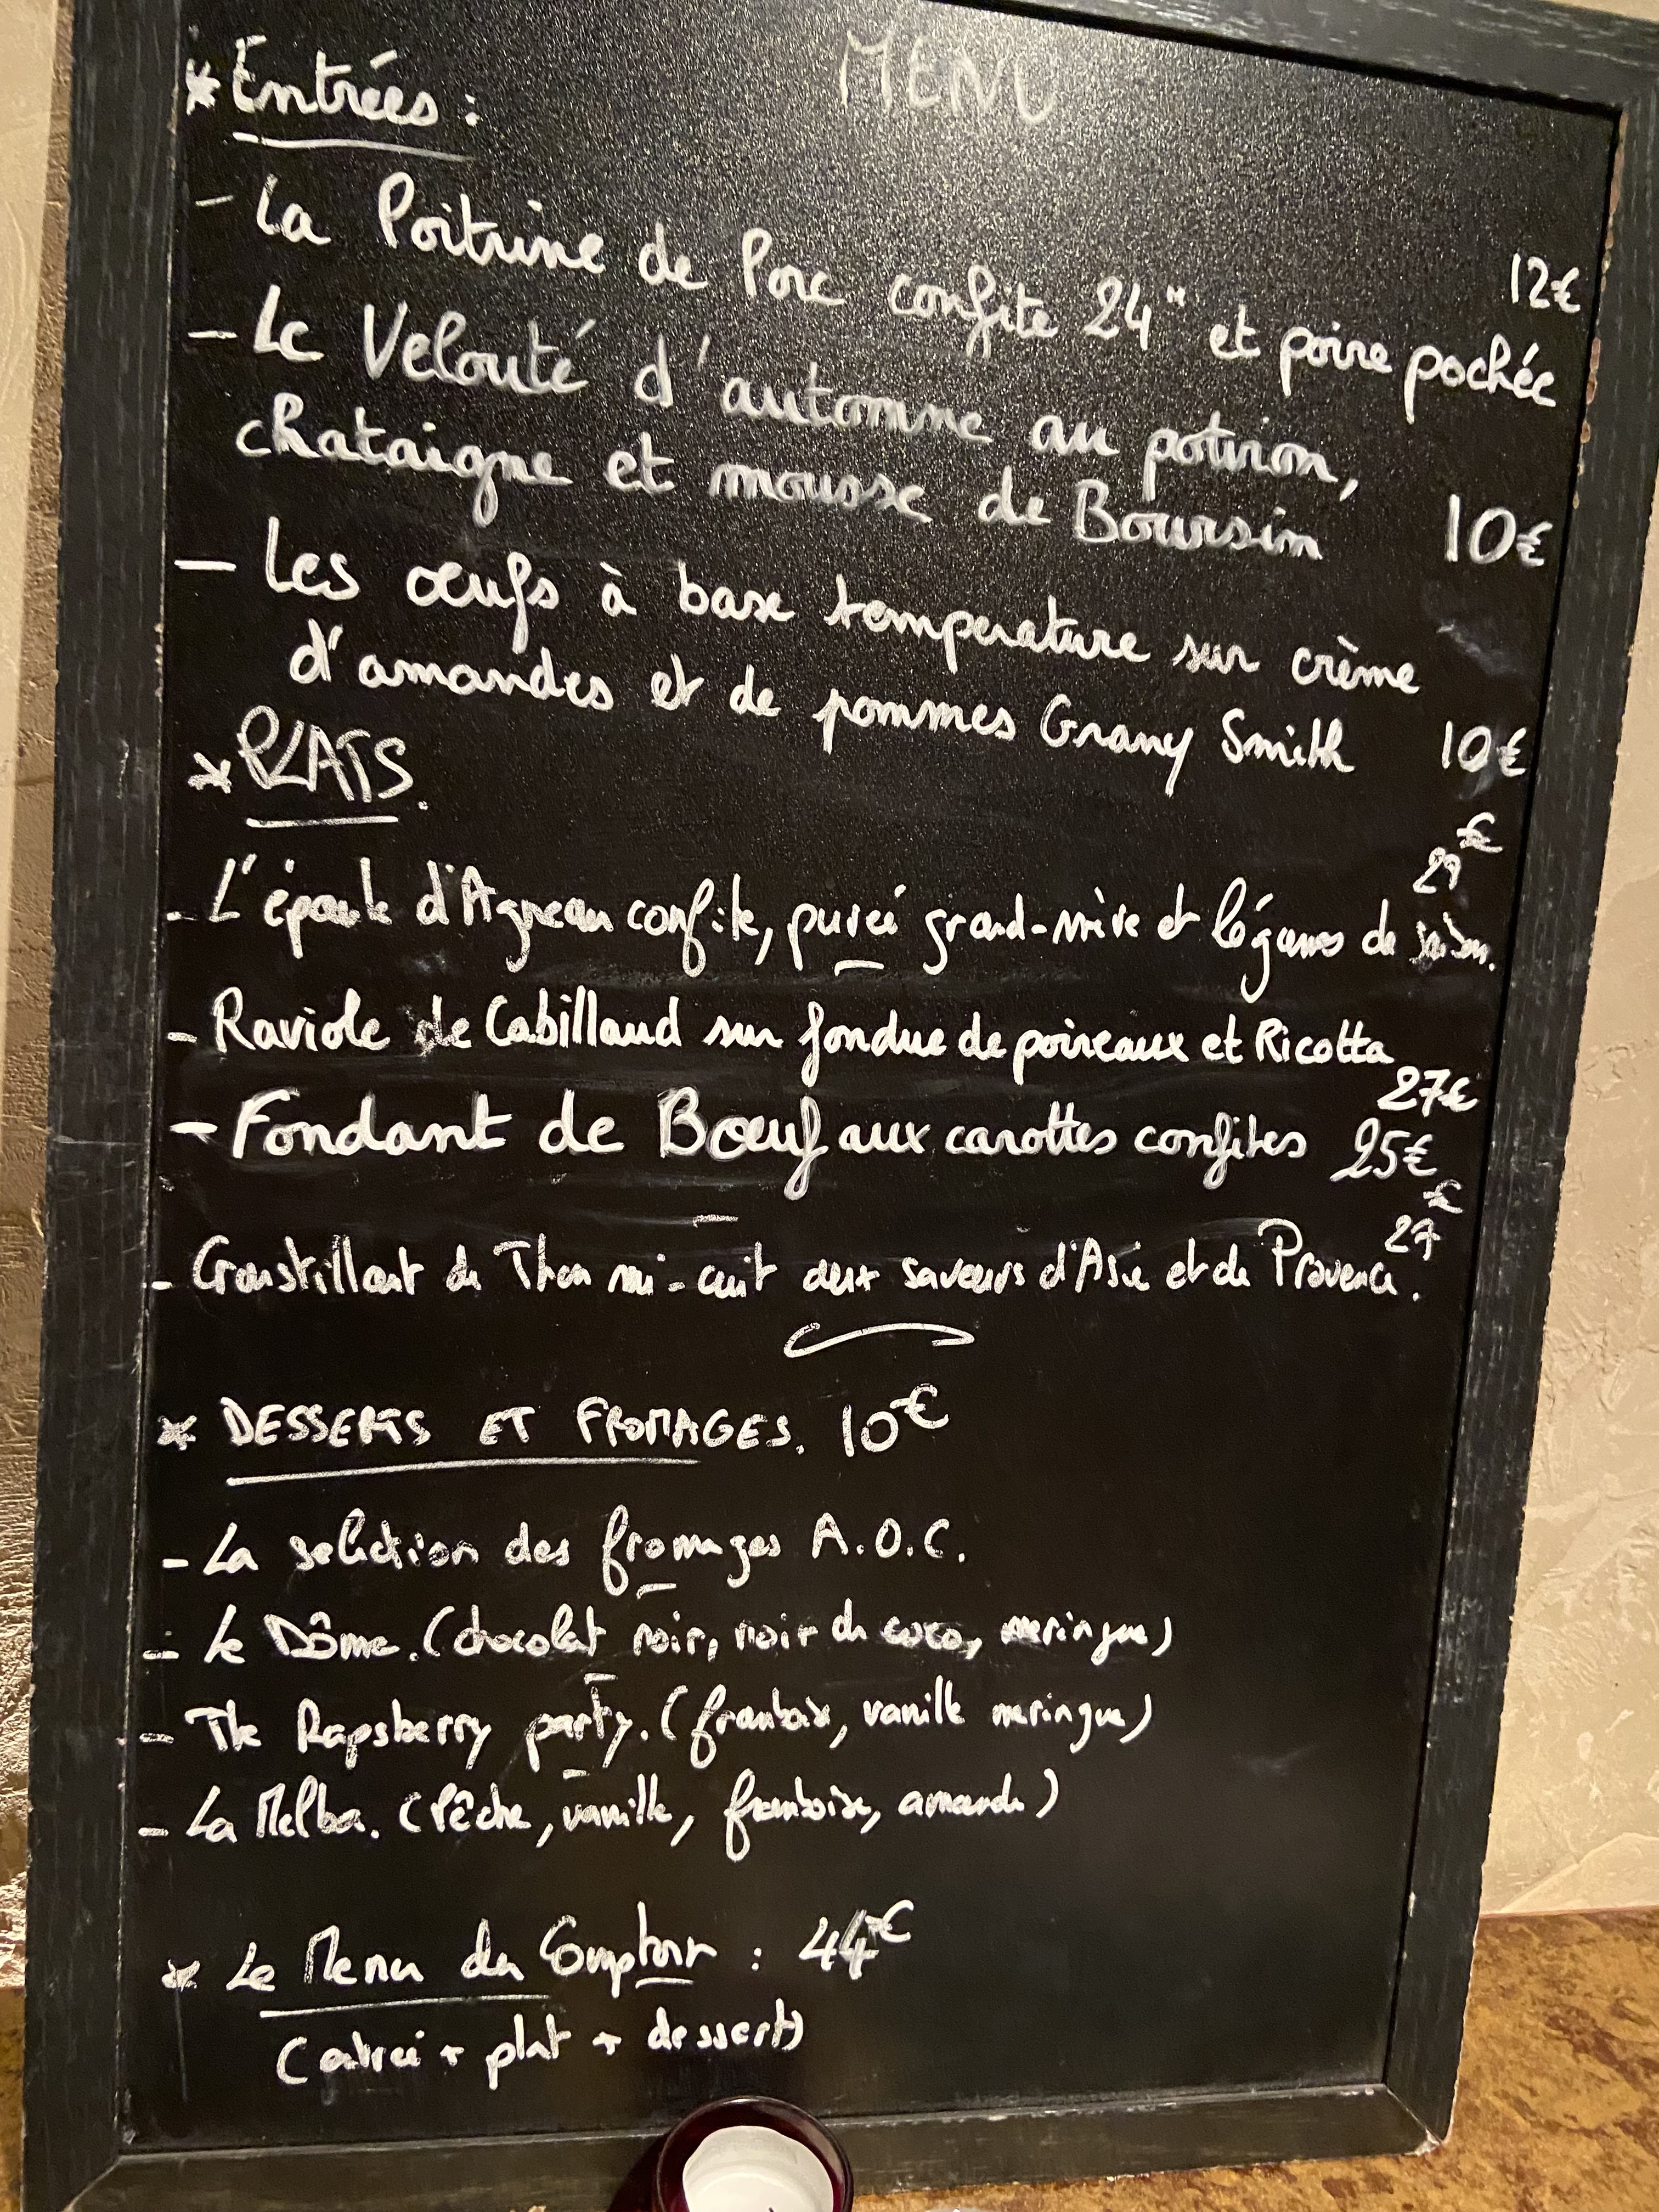 MENU
* Entrées :
- La Poitrine de Porc confite 24" et poire pochée 12€
- Le Velouté d'automne au potiron,
chataigne et mousse de Boursin 10€
- Les œufs à base temperature sur crème
d'amandes et de pommes Grany Smith 10€
* PLATS.
29€
- L'épaule d'Agneau confite, purée grand-mère et légumes de saison.
- Raviole de Cabillaud sur fondue de poireaux et Ricotta
27€
- Fondant de Bœuf aux carottes confites 25€
27€
- Croustillant de Thon mi-cuit aux saveurs d'Asie et de Provence.
* DESSERTS ET FROMAGES. 10€
- La selection des fromages A.O.C.
- Le Dôme. (chocolat noir, noix de coco, meringue)
- The Rapsberry party. (framboise, vanille meringue)
- La Melba. (Pêche, vanille, framboise, amande)
* Le Menu du Comptoir : 44€
(entrée + plat + dessert)